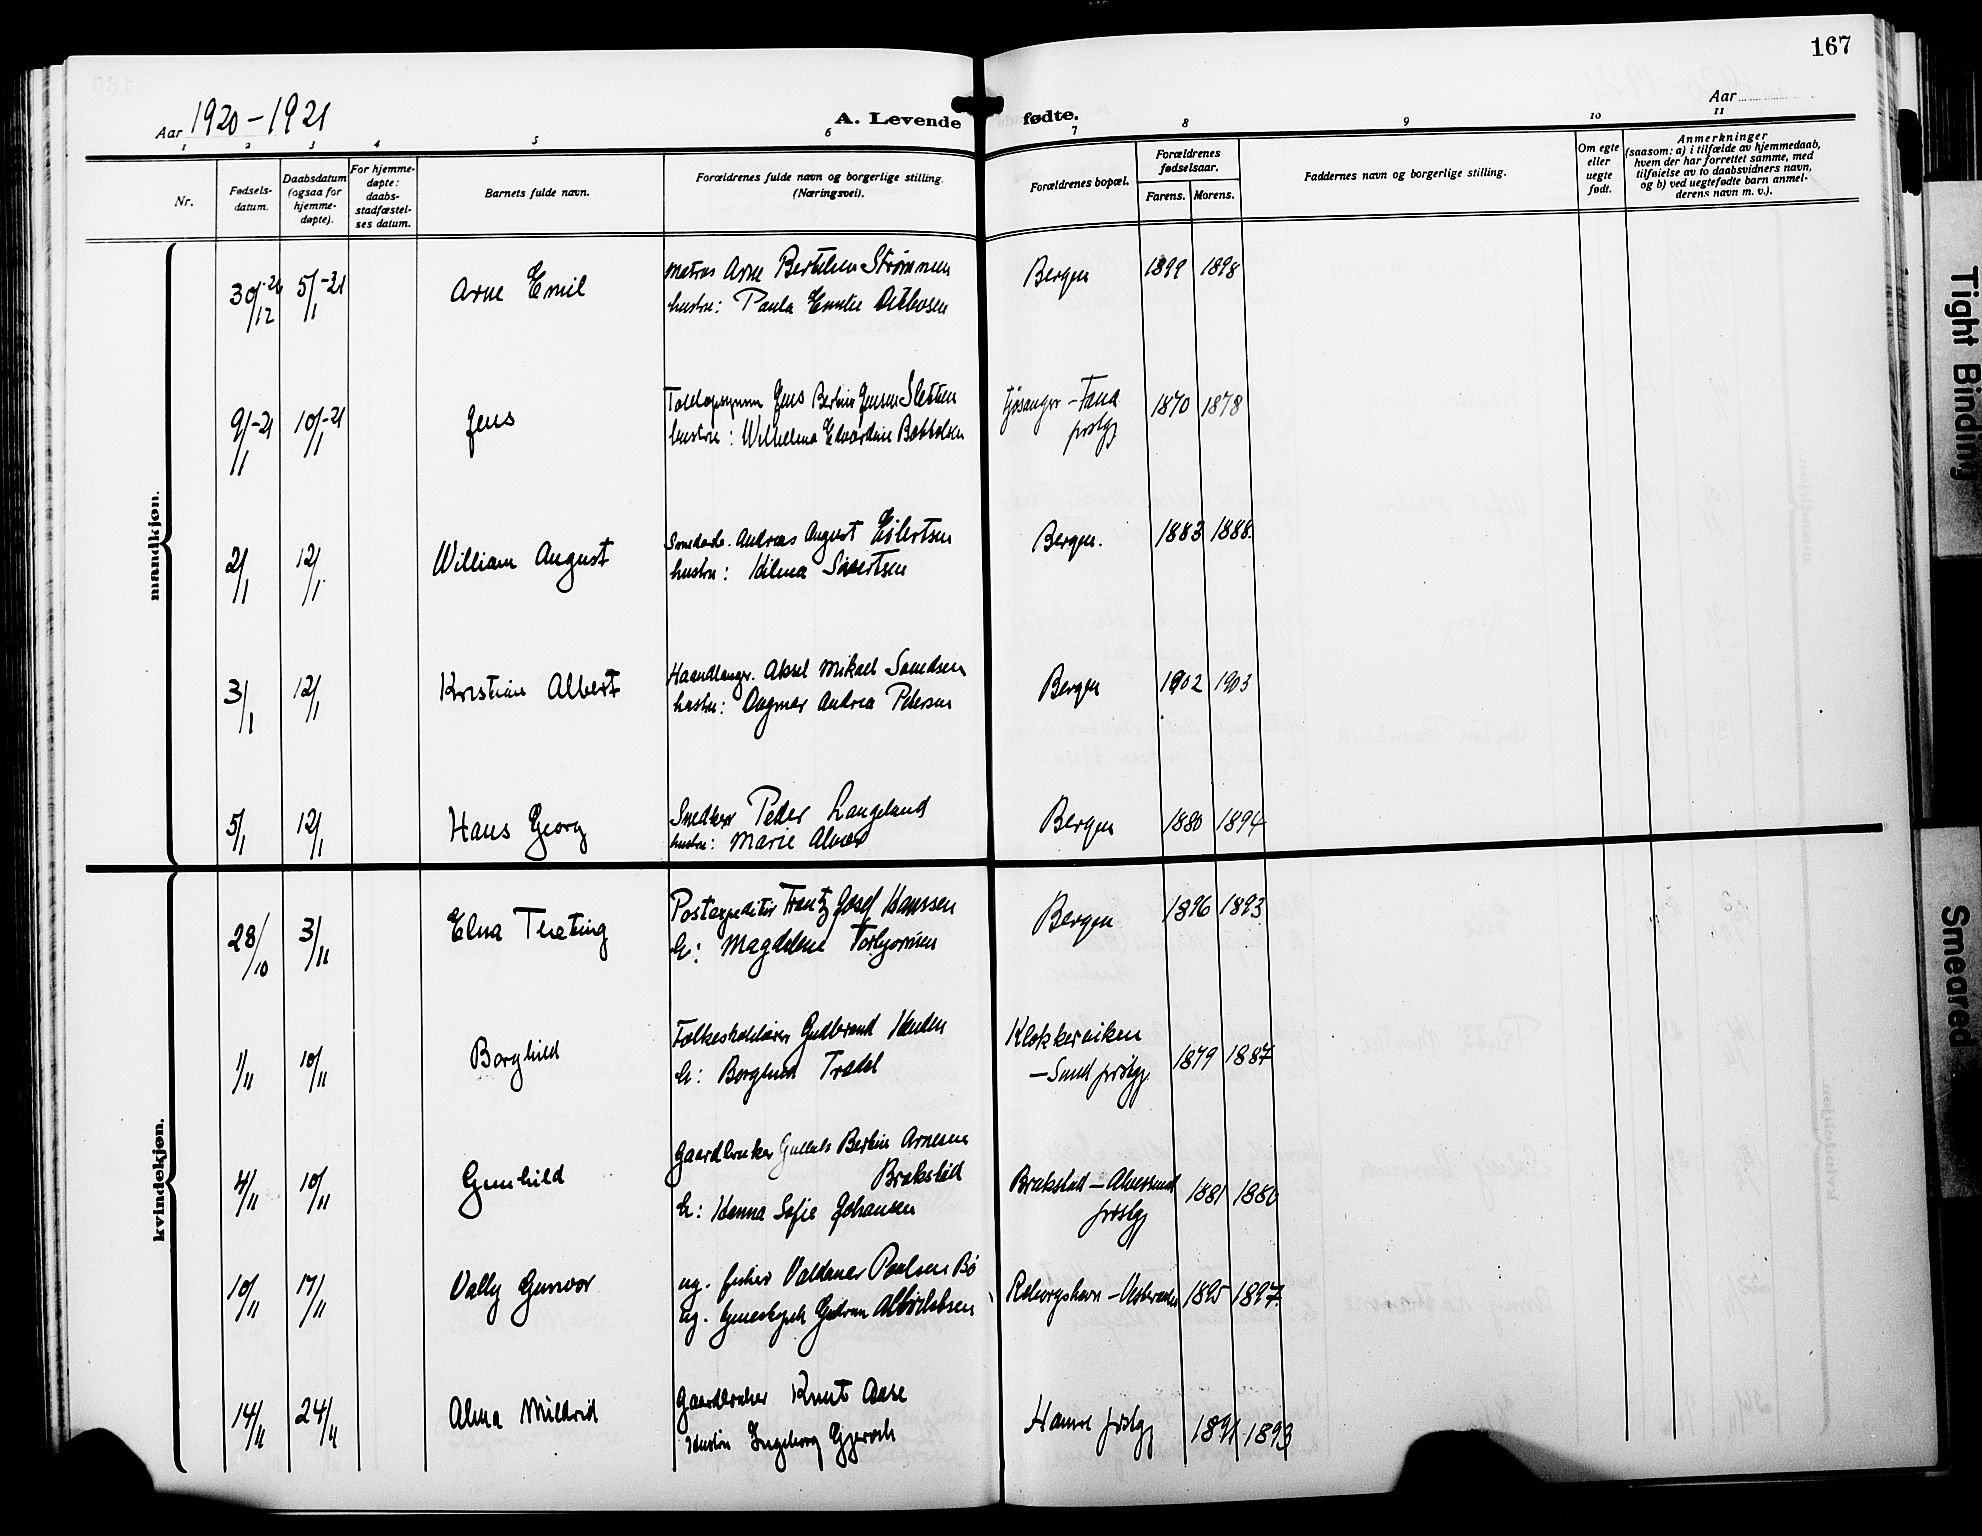 167
Aar 1920-1921
A. Levende fødte.
Aar
1 2 3 4 5 6 7 8 9 10 11
Nr.
Fødsels-
datum.
Daabsdatum
(ogsaa for
hjemme-
døpte).
For hjemme-
døpte:
daabs-
stadfæstel-
ses datum.
Barnets fulde navn.
Forældrenes fulde navn og borgerlige stilling.
(Næringsvei).
Forældrenes bopæl.
Forældrenes
fødselsaar.
Farens. Morens.
Faddernes navn og borgerlige stilling.
Om egte
eller
uegte
født.
Anmerkninger
(saasom: a) i tilfælde av hjemmedaab,
hvem der har forrettet samme, med
tilføielse av to daabsvidners navn,
og b) ved uegtefødte barn anmel-
derens navn m. v.).
mandkjøn.
30/12-20 5/1-21 Arne Emil Matros Arne Bertelsen Strømmen Bergen 1899 1898
hustru: Paula
9/1-21 10/1-21 Jens Jens Bertin Jensen Sletten Fana 1870 1878
hustru: Wilhelmine prstgj
2/1 12/1 William August Andreas August Eilertsen Bergen. 1883 1888.
hustru: Hilma Sivertsen
3/1 12/1 Kristian Albert Haandlanger. Aksel Mikael Bergen 1902 1903
hustru: Dagmar Andrea Petersen
5/1 12/1 Hans Georg Snedker Peder Langeland Bergen 1880 1894
hustru: Marie
kvindekjøn.
28/10 3/11 Elna Postexpeditør Frantz Josef Hanssen Bergen 1896 1893
h: Magdelene Torbjørnsen
1/11 10/11 Borghild Folkeskolelærer Gudbrand Klokkerviken 1879 1887
h: Borghild -Sund prstgj.
4/11 10/11 Gunhild Gaardbruker Bertin Arnesen
Brakstad Brakstad - Alversund 1881 1880
h: Hanna Sofie Johansen prstgj
10/11 17/11 Vally Gunvor ug. fisker Valdemar Paulsen Bø 1895 1897.
ug. Gudrun
14/11 24/11 Alma Mildrid Gaardbruker Knut Aase Hamre prstgj 1891 1893
Hustru Ingeborg
Tight Binding
Smeared